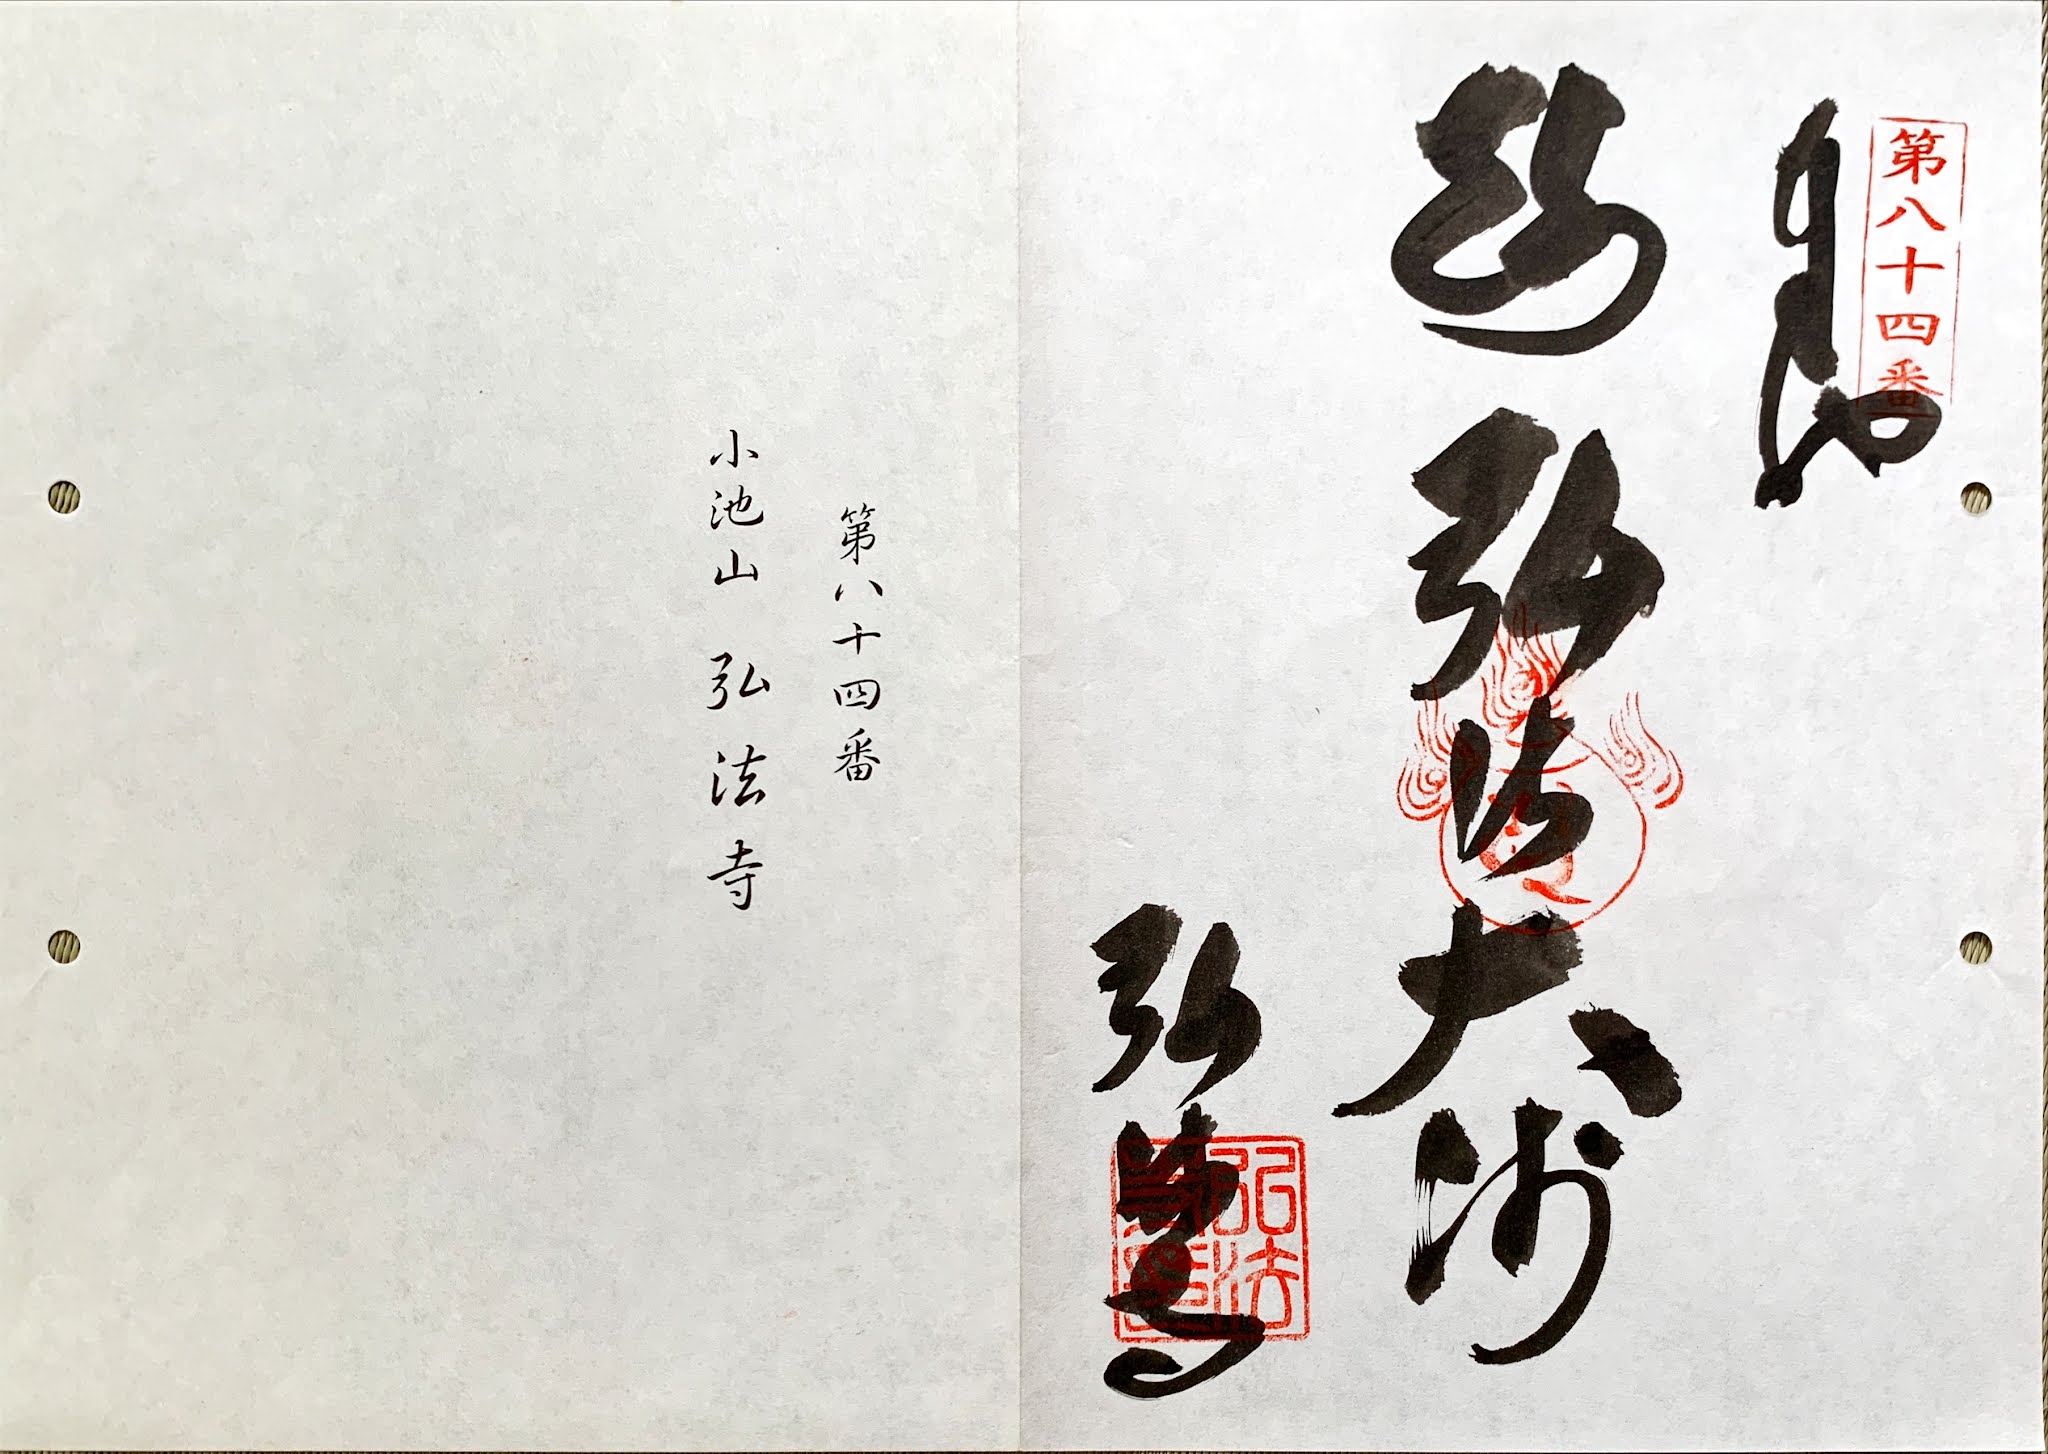 第八十四番
奉拝
弘法大師
弘法寺
弘法寺
第八十四番
小池山 弘法寺